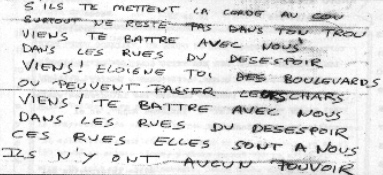 S'ILS TE METTENT LA CORDE AU COU
SURTOUT NE RESTE PAS DANS TON TROU
VIENS TE BATTRE AVEC NOUS
DANS LES RUES DU DESESPOIR
VIENS! ELOIGNE TOI DES BOULEVARDS
OU PEUVENT PASSER LEURS CHARS
VIENS! TE BATTRE AVEC NOUS
DANS LES RUES DU DESESPOIR
CES RUES ELLES SONT A NOUS
ILS N'Y ONT AUCUN POUVOIR